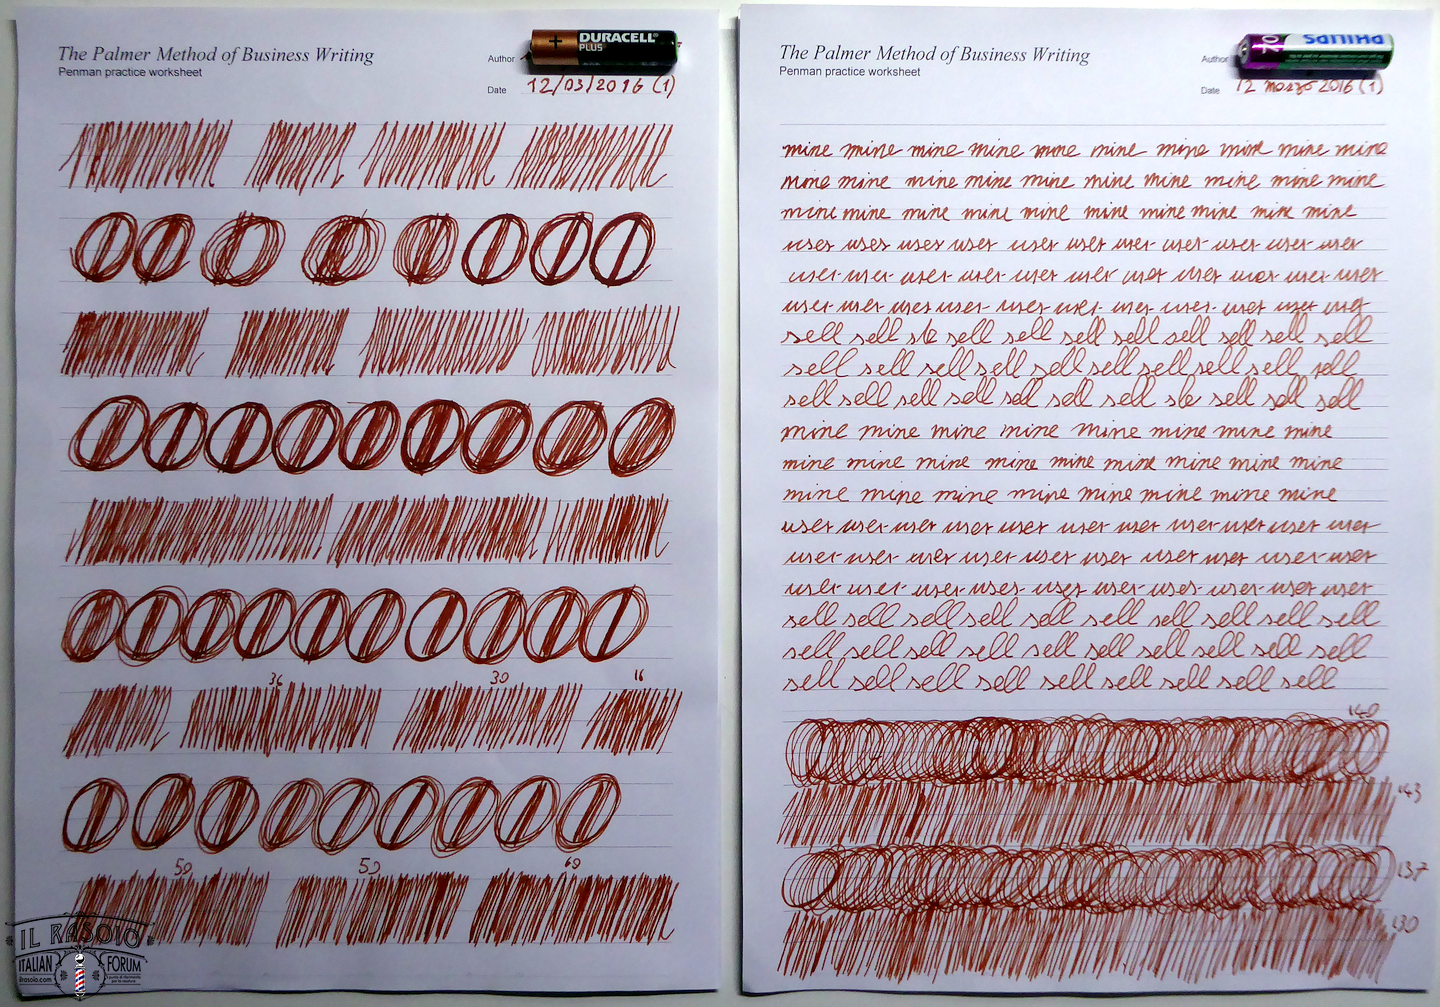 The Palmer Method of Business Writing
Penman practice worksheet
Author
DURACELL
PLUS
Date 12/03/2016 (1)
36 30 16
50 50 60
IL RASOIO
ITALIAN FORUM
ilrasoio.com
The Palmer Method of Business Writing
Penman practice worksheet
Author
PHILIPS
Date 12 marzo 2016 (1)
mine mine mine mine mine mine mine mine mine mine
mine mine mine mine mine mine mine mine mine mine
mine mine mine mine mine mine mine mine mine mine
user user user user user user user user user user user
user user user user user user user user user user user
user user user user user user user user user user user
sell sell sle sell sell sell sell sell sell sell sell
sell sell sell sell sell sell sell sell sell sell
sell sell sell sell sell sell sell sle sell sell sell
mine mine mine mine mine mine mine mine
mine mine mine mine mine mine mine mine mine
mine mine mine mine mine mine mine mine
user user user user user user user user user user user
user user user user user user user user user user
user user user user user user user user user user user
sell sell sell sell sell sell sell sell sell sell
sell sell sell sell sell sell sell sell sell sell
sell sell sell sell sell sell sell sell sell
140
143
137
130